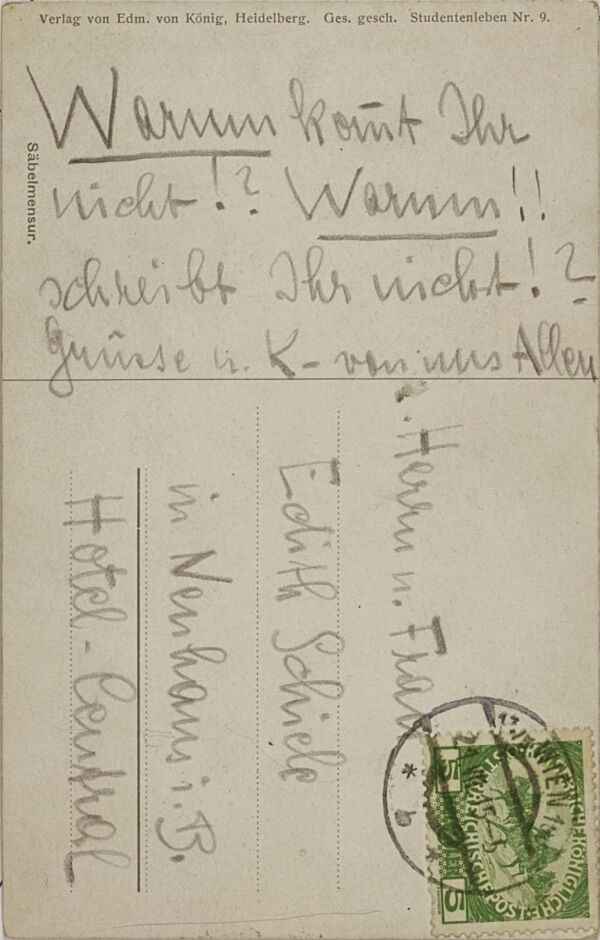 Verlag von Edm. von König, Heidelberg. Ges. gesch. Studentenleben Nr. 9.
Säbelmensur.
Warum kom̅t Ihr
nicht!? Warum!!
schreibt Ihr nicht!?
Grüsse u. K- von uns Allen
Herrn u. Frau
Edith Schiele
in Neuhaus i. B.
Hotel-Central
WIEN
b
5
5